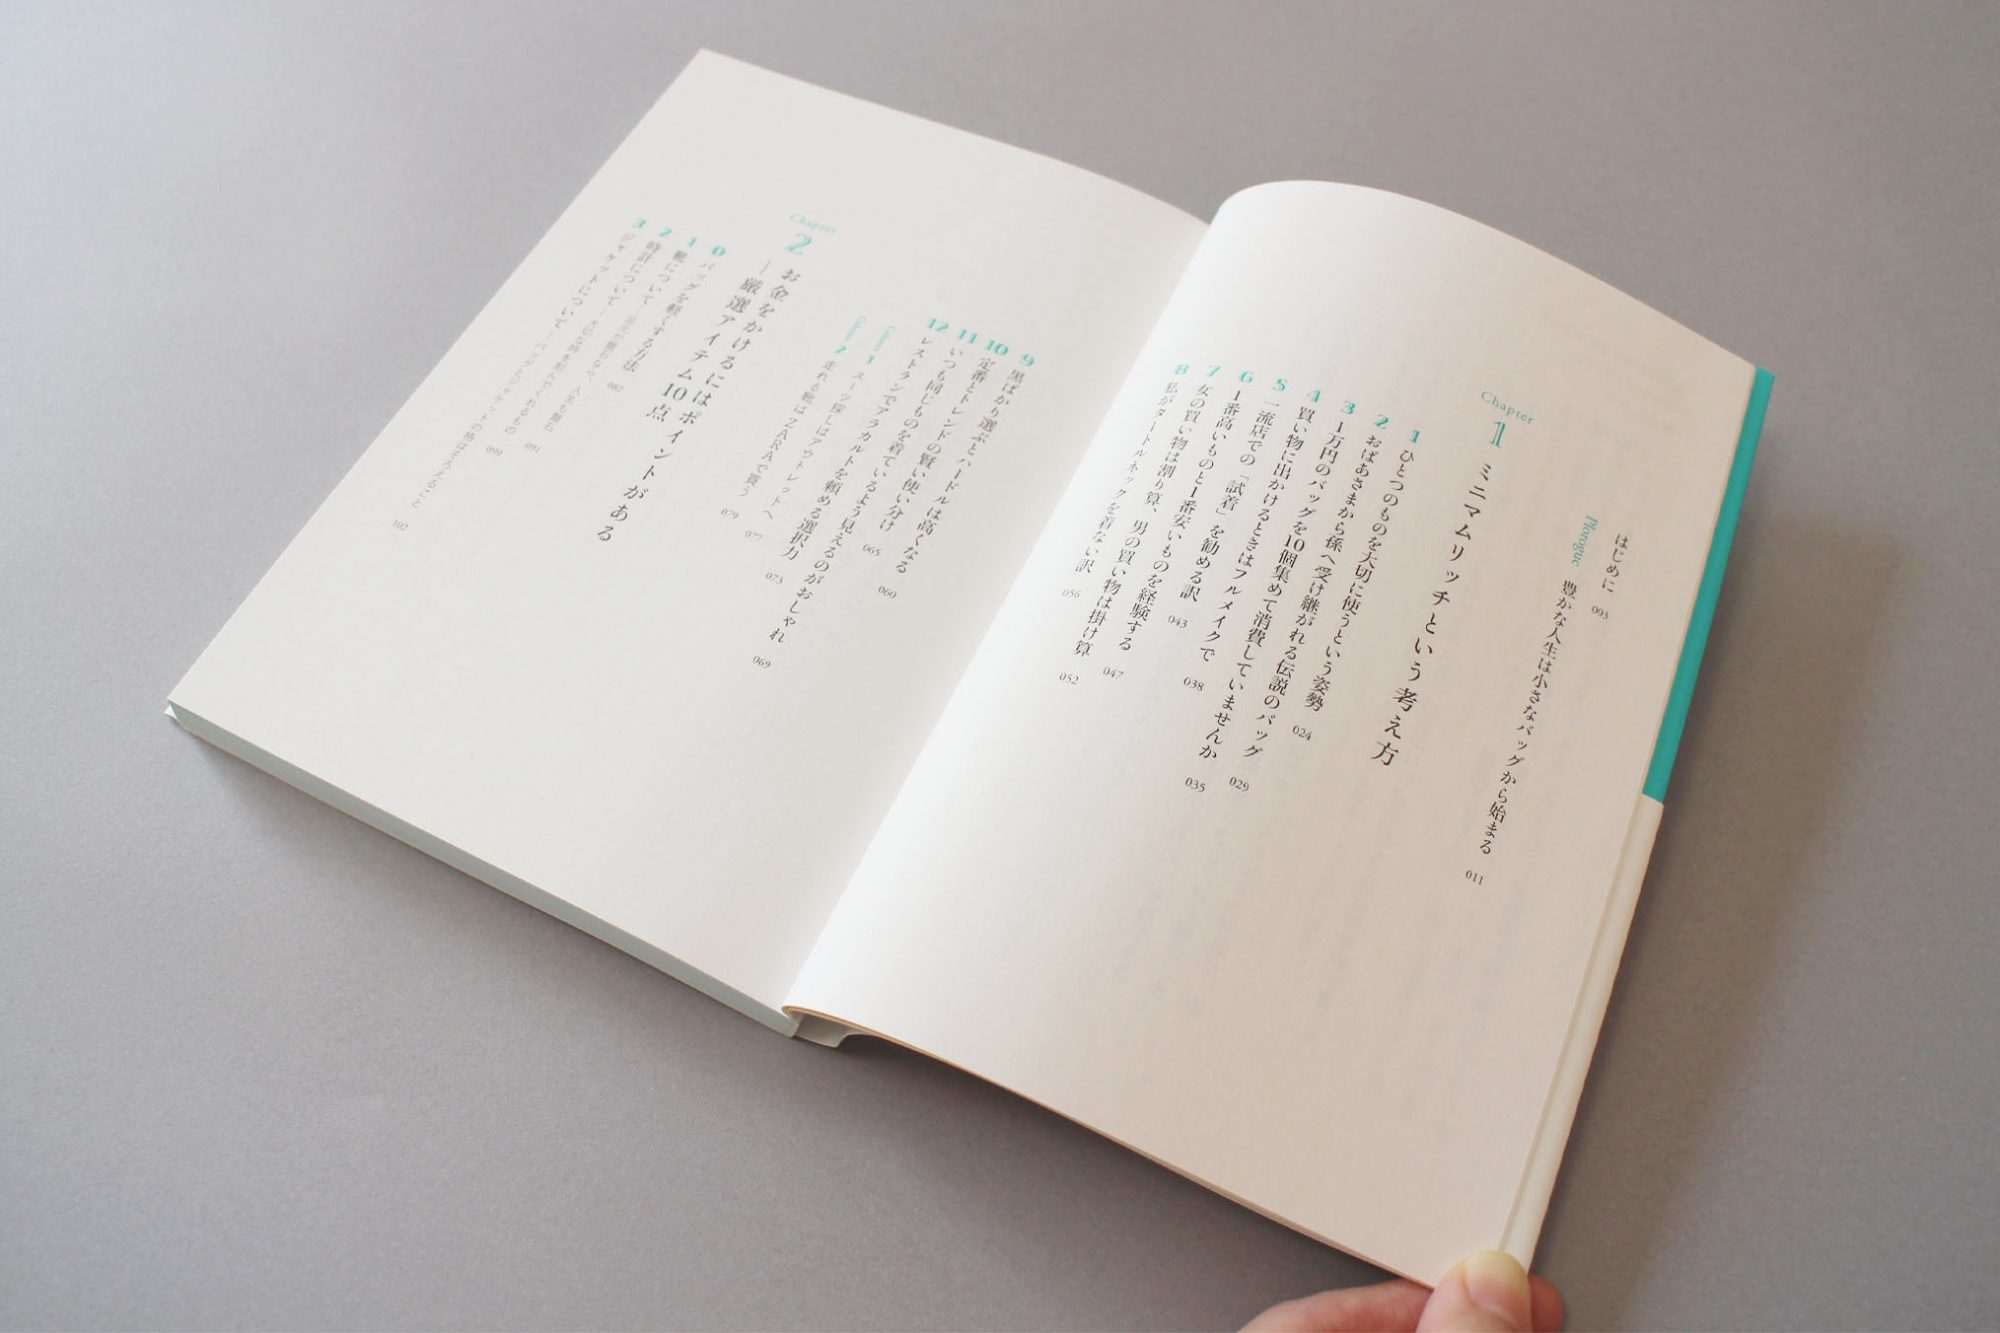 はじめに 003
Plorogue 豊かな人生は小さなバッグから始まる 011
Chapter 1 ミニマムリッチという考え方
1 ひとつのものを大切に使うという姿勢 024
2 おばあさまから孫へ受け継がれる伝説のバッグ 029
3 1万円のバッグを10個集めて消費していませんか 035
4 買い物に出かけるときはフルメイクで 038
5 一流店での「試着」を勧める訳 043
6 1番高いものと1番安いものを経験する 047
7 女の買い物は割り算、男の買い物は掛け算 052
8 私がタートルネックを着ない訳 056
9 黒ばかり選ぶとハードルは高くなる 060
10 定番とトレンドの賢い使い分け 065
11 いつも同じものを着ているよう見えるのがおしゃれ 069
12 レストランでアラカルトを頼める選択力 073
Column 1 スーツ探しはアウトレットへ 077
Column 2 走れる靴はZARAで買う 079
Chapter 2 お金をかけるにはポイントがある
―厳選アイテム10点
0 バッグを軽くする方法 082
1 靴について―足元が盤石なら、人生も盤石 091
2 時計について―大切な時を刻んでくれるもの 099
3 ジャケットについて―バッグとジャケットの格はそろえること 102